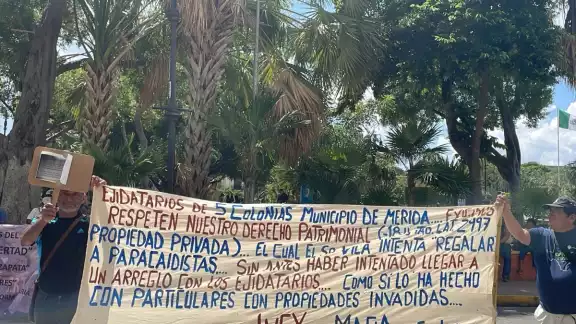 EJIDATARIOS DE 5 COLONIAS MUNICIPIO DE MERIDA... EXIJIMOS
RESPETEN NUESTRO DERECHO PATRIMONIAL (18 Y
PROPIEDAD PRIVADA). EL CUAL EL VILA INTENTA REGALAR
A PARACAIDISTAS... SIN ANTES HABER INTENTADO LLEGAR A
UN ARREGLO CON LOS EJIDATARIOS... COMO SÍ LO HA HECHO
CON PARTICULARES CON PROPIEDADES INVADIDAS....
ZAPATA